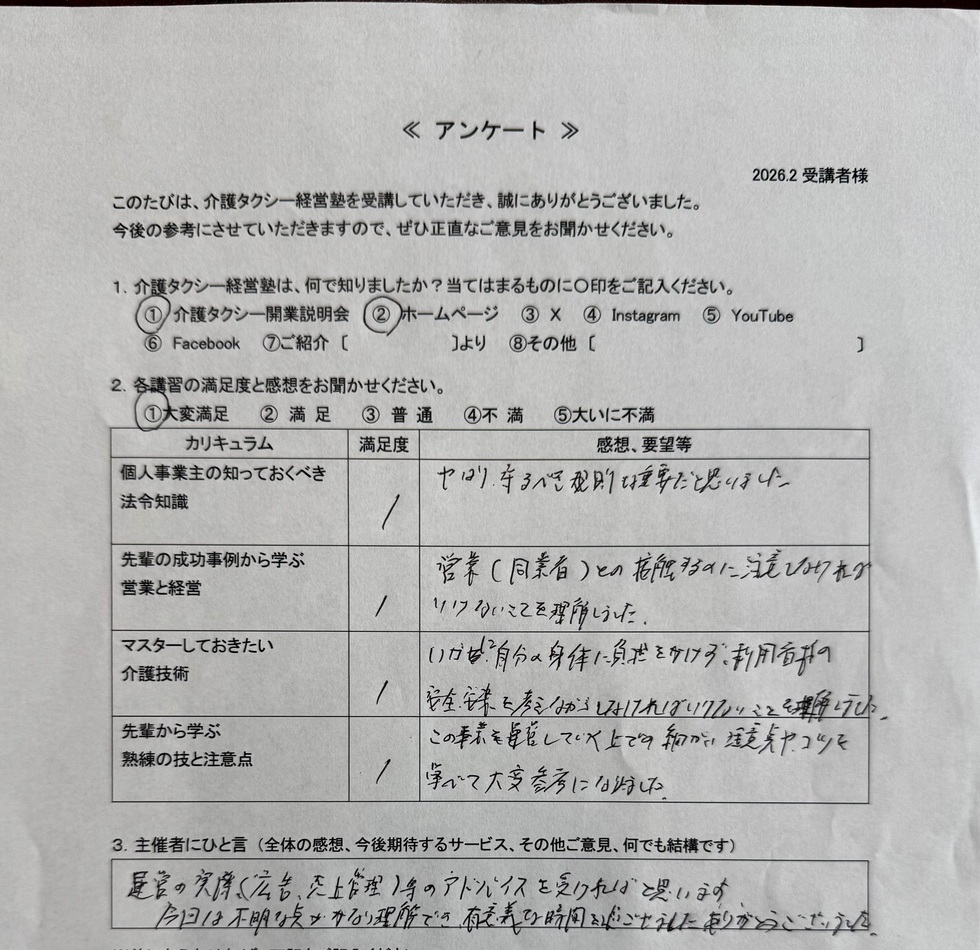 ≪ アンケート ≫
2026.2 受講者様
このたびは、介護タクシー経営塾を受講していただき、誠にありがとうございました。
今後の参考にさせていただきますので、ぜひ正直なご意見をお聞かせください。
1. 介護タクシー経営塾は、何で知りましたか？当てはまるものに〇印をご記入ください。
① 介護タクシー開業説明会 ② ホームページ ③ X ④ Instagram ⑤ YouTube
⑥ Facebook ⑦ご紹介 [ ]より ⑧その他 [ ]
2. 各講習の満足度と感想をお聞かせください。
①大変満足 ② 満 足 ③ 普 通 ④不 満 ⑤大いに不満
カリキュラム 満足度 感想、要望等
個人事業主の知っておくべき
法令知識
1
やはり、守るべき規則は重要だと思いました
先輩の成功事例から学ぶ
営業と経営
1
営業(同業者)との接触するのに注意しなければ
いけないことを理解しました.
マスターしておきたい
介護技術
1
いかに自分の身体に負担をかけず、利用者様の
安全、安楽を考えながらしなければいけないことを理解しました.
先輩から学ぶ
熟練の技と注意点
1
この事業を運営していく上での細かい注意点や.コツを
学べて大変参考になりました.
3. 主催者にひと言（全体の感想、今後期待するサービス、その他ご意見、何でも結構です）
運営の実際(広告、売上管理)等のアドバイスを受ければと思います
今回は不明な点がかなり理解でき、有意義な時間を過ごせました ありがとうございました.